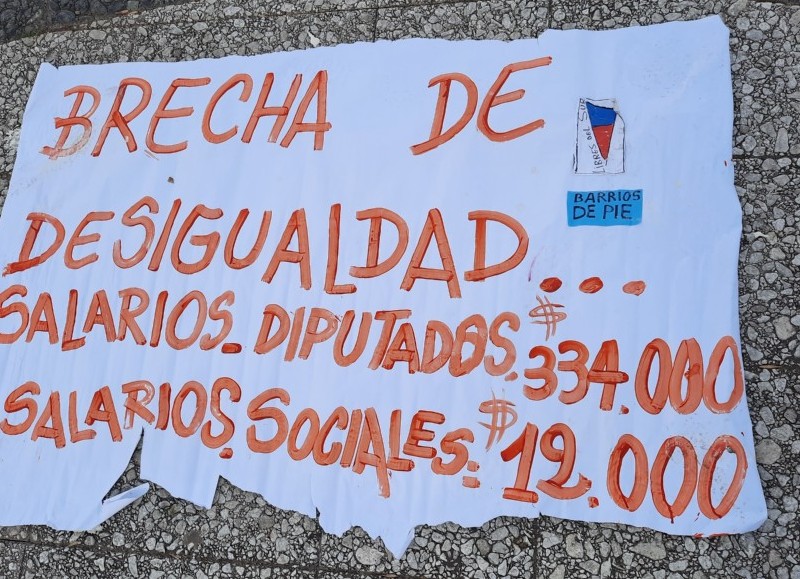 BRECHA DE
LIBRES DEL SUR
BARRIOS
DE PIE
DESIGUALDAD...
SALARIOS_DIPUTADOS. $334.000
SALARIOS.SOCIALES: $12.000